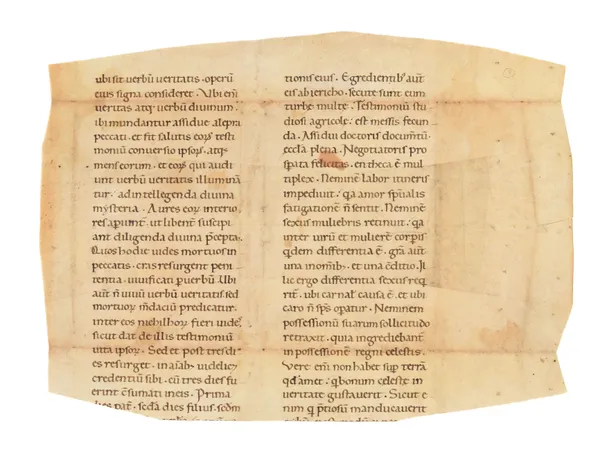 ubi sit verbū veritatis · operū
eius signa consideret · Ubi em̄
veritas atq; verbū divinum·
ibi mundantur assidue a lepra
peccati· et fit salutis eoꝝ testi
moniū conversio ipsoꝝ· atq;
mens eorum· et eoꝝ qui audi
unt verbū veritatis illumina
tur· ad intellegenda divina
mysteria· Aures eoꝝ interio
res aꝑiunt̄· ut libent̄ suscipi
ant diligenda divina p̄cepta·
Quos hodie vides mortuos in
peccatis· cras resurgent peni
tentia· vivificati ꝑ verbū· Ubi
aut̄ n̄ vivū verbū veritatis sed
mortuoꝝ m̄daciū predicatur·
inter eos nichil hoꝝ fieri vides·
sicut dat̄ de illis testimoniū
vita ipsoꝝ· Sed et post tres di
es resurget· in a
credentiū sibi· cū tres dies fu
erint c̄sumati in eis· Prima
dies pat̄· scd̄a dies filius· scd̄m
tionis eius· Egredientib; aut̄
eis ab iericho· secute sunt eum
turbe multe· Testimoniū stu
diosi agricole· est messis fecun
da· Assidui doctoris documtū·
eccl̄a plena· Negotiatoris pro
spata felicitas· en theca ē mul
tiplex· Neminē labor itineris
impeduit· q̄a amor spūalis
fatigationē n̄ sentit· Neminē
sexus muliebris retinuit· q̄a
inter virū et mulierē corꝑis
q̄dem differentia ē· gr̄a aut̄
una hominib; et una c̄ditio· Il
lic ergo differentia sexus req
rit̄· ubi carnal̄ causa ē· et ubi
caro n̄ sp̄s opatur· Neminem
possessionū suarum sollicitudo
retraxit· quia ingrediebant̄
in possessionē regni celestis·
Vere em̄ non habet sup̄ terrā
qd̄ amet· q̄ bonum celeste in
veritate gustaverit· Sicut e
nim q̄ p̄tiosū manducaverit